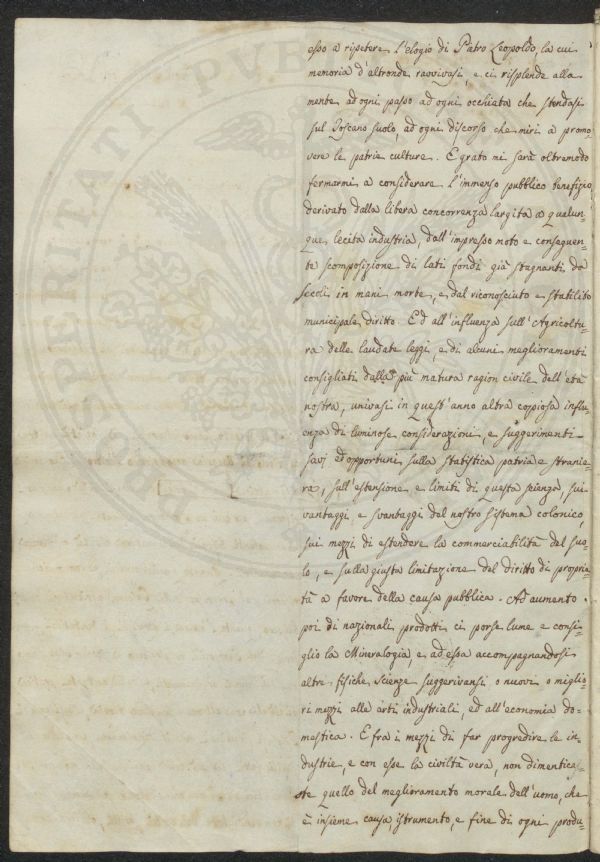 esso a ripetere l'elogio di Pietro Leopoldo, la cui
memoria d'altronde ravvivasi, e ci risplende alla
mente ad ogni passo ad ogni occhiata che stendasi
sul Toscano suolo, ad ogni discorso che miri a promo=
vere le patrie culture. E grato mi sarà oltremodo
fermarmi a considerare l'immenso pubblico benefizio
derivato dalla libera concorrenza largita a qualun=
que lecita industria, dall'impresso moto e conseguen=
te scomposizione di lati fondi già stagnanti da
secoli in mani morte, e dal riconosciuto e stabilito
municipale diritto. Ed all'influenza sull'Agricoltu=
ra delle laudate leggi, e di alcuni meglioramenti
consigliati dalla più matura ragion civile dell'età
nostra, univasi in quest'anno altra coppiosa influ=
enza di luminose considerazioni, e suggerimenti
savj ed opportuni sulla statistica patria e stranie=
ra, sull'estensione e limiti di questa scienza, sui
vantaggi e svantaggi del nostro sistema colonico,
sui mezzi di estendere la commerciabilità del suo=
lo, e sulla giusta limitazione del diritto di proprie=
tà a favore della causa pubblica. Ad aumento
poi di nazionali prodotti ci porse lume e consi=
glio la Mineralogia, e ad essa accompagnandosi
altre fisiche scienze suggerivansi o nuovi o miglio=
ri mezzi alle arti industriali, ed all'economia do=
mestica. E fra i mezzi di far progredire le in=
dustrie, e con esse la civiltà vera, non dimentica=
ste quello del meglioramento morale dell'uomo, che
è insieme causa, istrumento, e fine di ogni produ=
PROSPERITATI